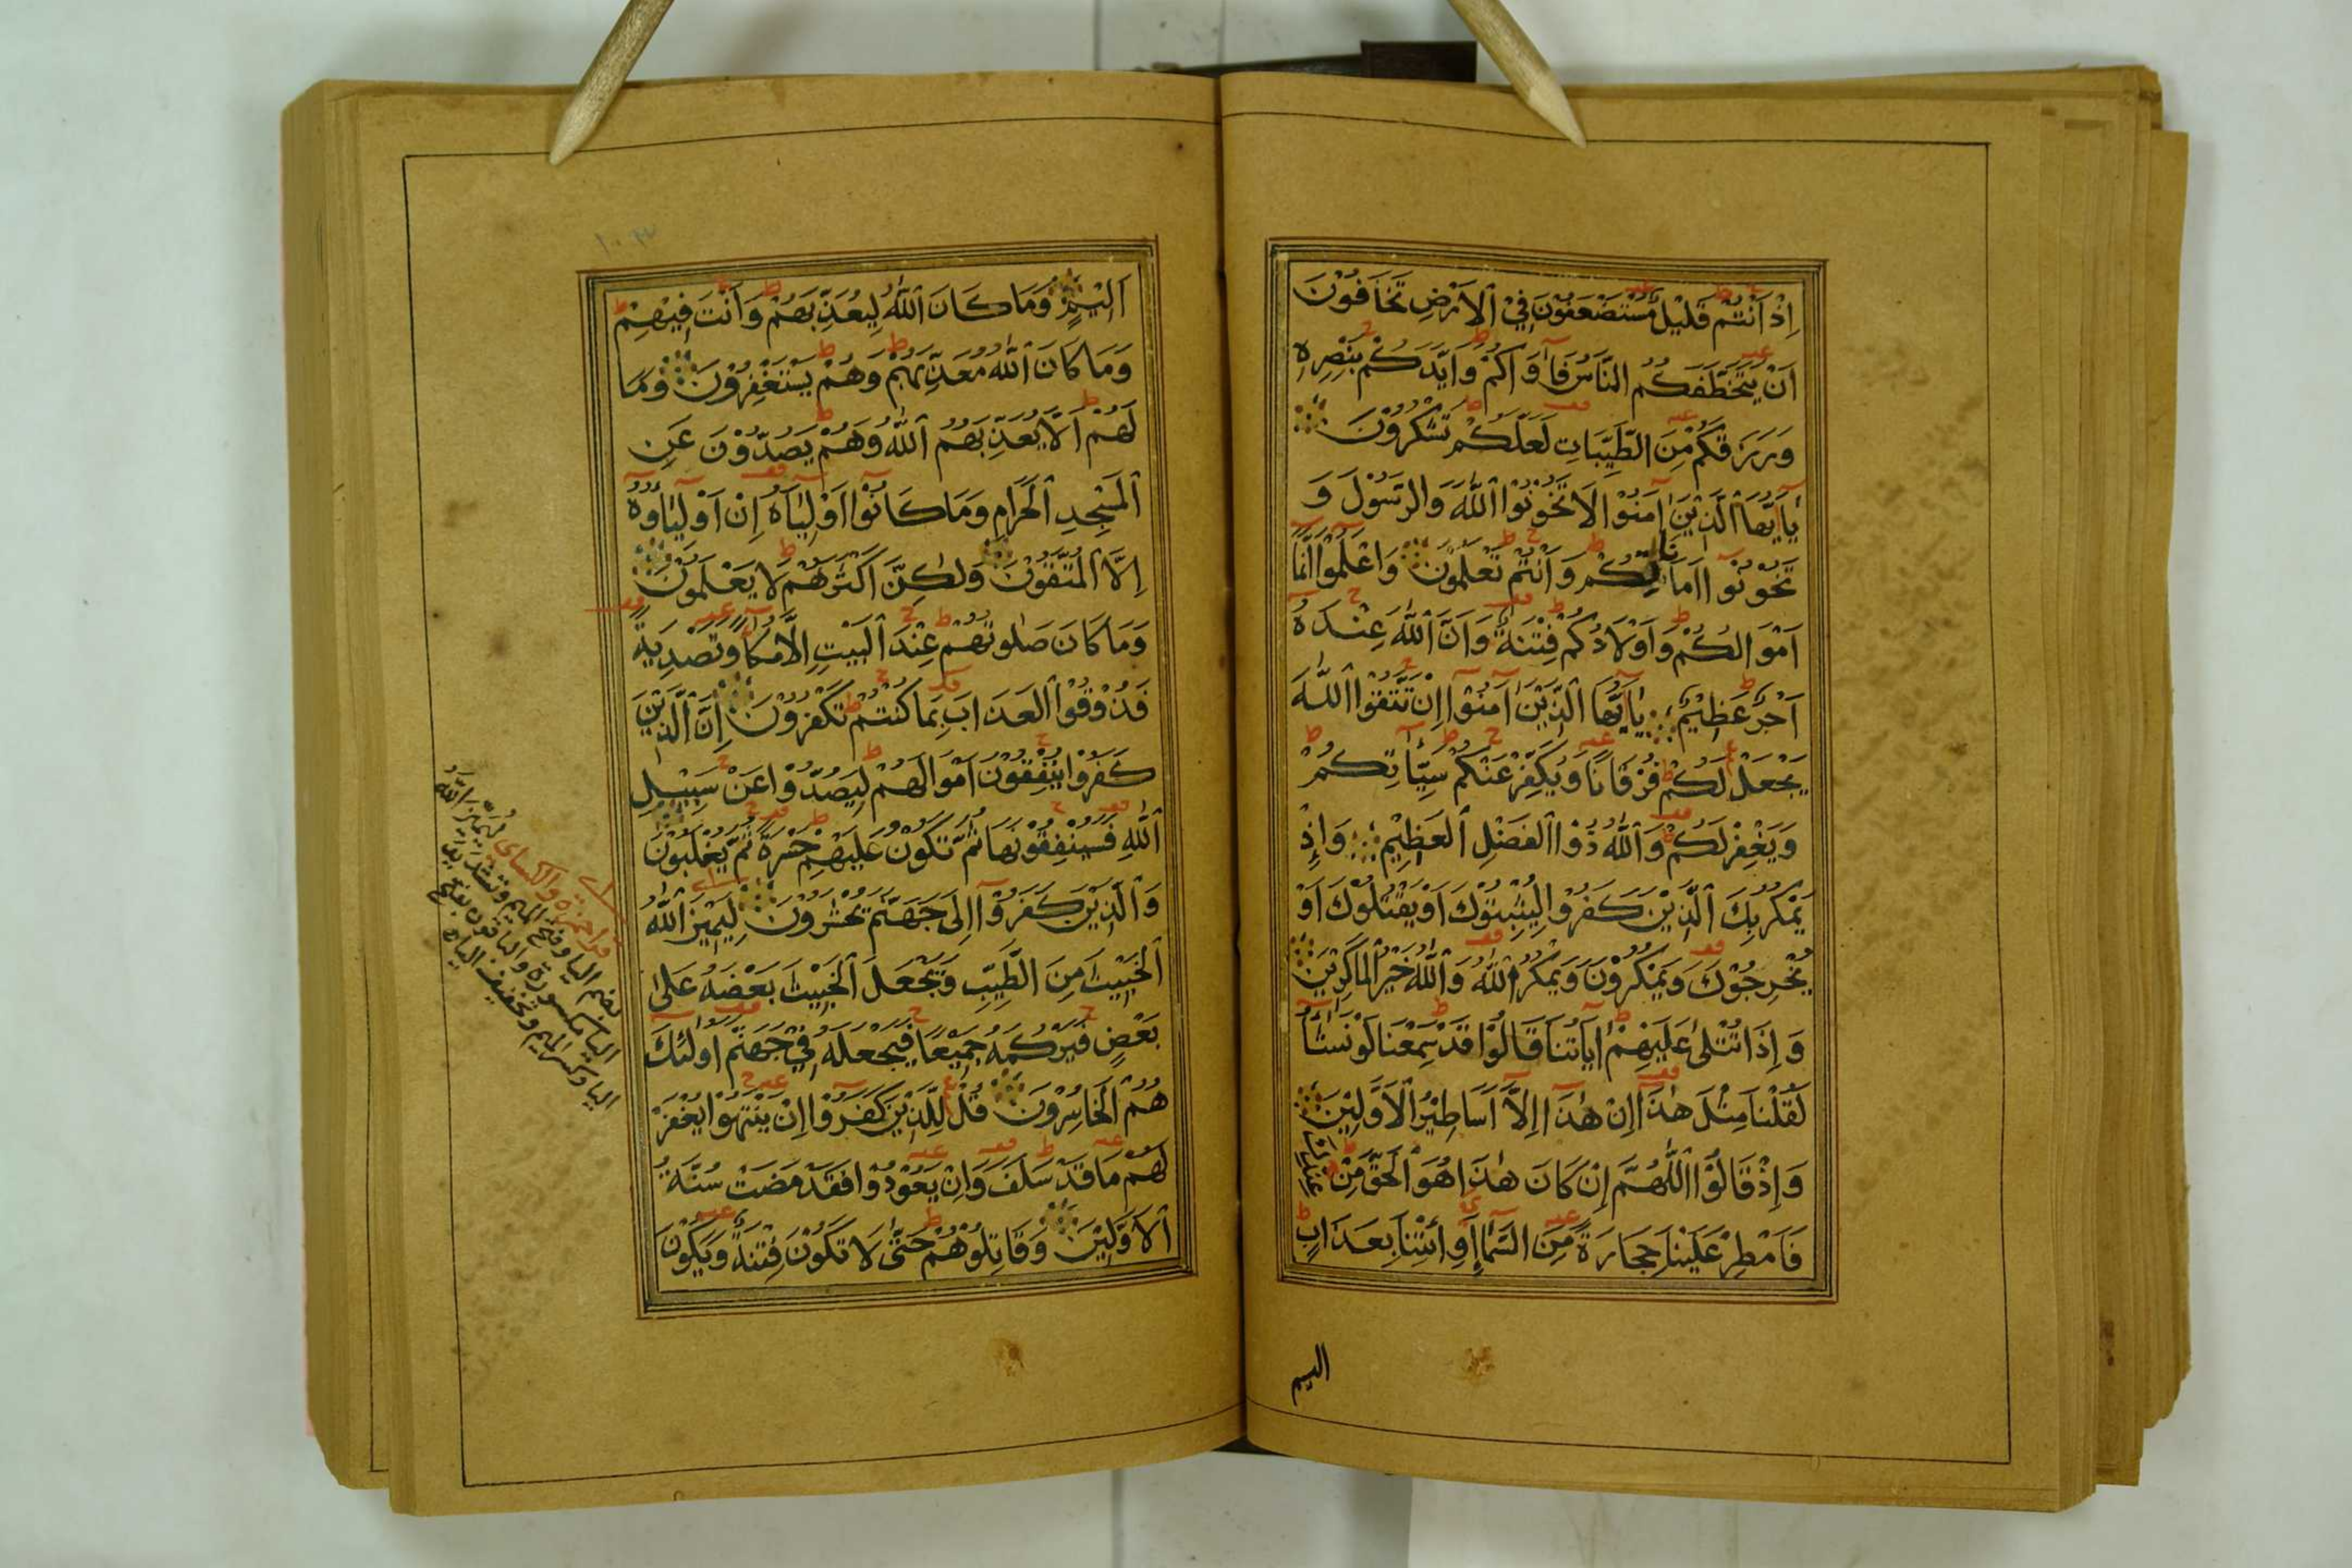 اِذْ اَنْتُمْ قَلِيْلٌ مُسْتَضْعَفُوْنَ فِيْ الْاَرْضِ تَخَافُوْنَ
اَنْ يَتَخَطَّفَكُمُ النَّاسُ فَآوَاكُمْ وَاَيَّدَكُمْ بِنَصْرِهِ
وَرَزَقَكُمْ مِنَ الطَّيِّبَاتِ لَعَلَّكُمْ تَشْكُرُوْنَ
يَا اَيُّهَا الَّذِيْنَ اٰمَنُوْا لَا تَخُوْنُوْا اللّٰهَ وَالرَّسُوْلَ وَ
تَخُوْنُوْا اَمَانَاتِكُمْ وَاَنْتُمْ تَعْلَمُوْنَ وَاعْلَمُوْا اَنَّمَا
اَمْوَالُكُمْ وَاَوْلَادُكُمْ فِتْنَةٌ وَاَنَّ اللّٰهَ عِنْدَهُ
اَجْرٌ عَظِيْمٌ يَا اَيُّهَا الَّذِيْنَ اٰمَنُوْا اِنْ تَتَّقُوْا اللّٰهَ
يَجْعَلْ لَكُمْ فُرْقَانًا وَيُكَفِّرْ عَنْكُمْ سَيِّئَاتِكُمْ
وَيَغْفِرْ لَكُمْ وَاللّٰهُ ذُوْا الْفَضْلِ الْعَظِيْمِ وَاِذْ
يَمْكُرُ بِكَ الَّذِيْنَ كَفَرُوْا لِيُثْبِتُوْكَ اَوْ يَقْتُلُوْكَ اَوْ
يُخْرِجُوْكَ وَيَمْكُرُوْنَ وَيَمْكُرُ اللّٰهُ وَاللّٰهُ خَيْرُ الْمَاكِرِيْنَ
وَاِذَا تُتْلٰى عَلَيْهِمْ اٰيَاتُنَا قَالُوْا قَدْ سَمِعْنَا لَوْ نَشَآءُ
لَقُلْنَا مِثْلَ هٰذَا اِنْ هٰذَا اِلَّا اَسَاطِيْرُ الْاَوَّلِيْنَ
وَاِذْ قَالُوْا اللّٰهُمَّ اِنْ كَانَ هٰذَا هُوَ الْحَقَّ مِنْ عِنْدِكَ
فَاَمْطِرْ عَلَيْنَا حِجَارَةً مِنَ السَّمَآءِ اَوِ ائْتِنَا بِعَذَابٍ
اليم
اَلِيْمٍ وَمَا كَانَ اللّٰهُ لِيُعَذِّبَهُمْ وَاَنْتَ فِيْهِمْ
وَمَا كَانَ اللّٰهُ مُعَذِّبَهُمْ وَهُمْ يَسْتَغْفِرُوْنَ وَمَا
لَهُمْ اَلَّا يُعَذِّبَهُمُ اللّٰهُ وَهُمْ يَصُدُّوْنَ عَنِ
الْمَسْجِدِ الْحَرَامِ وَمَا كَانُوْا اَوْلِيَآءَهُ اِنْ اَوْلِيَآؤُهُ
اِلَّا الْمُتَّقُوْنَ وَلٰكِنَّ اَكْثَرَهُمْ لَا يَعْلَمُوْنَ
وَمَا كَانَ صَلٰوتُهُمْ عِنْدَ الْبَيْتِ اِلَّا مُكَآءً وَتَصْدِيَةً
فَذُوْقُوْا الْعَذَابَ بِمَا كُنْتُمْ تَكْفُرُوْنَ اِنَّ الَّذِيْنَ
كَفَرُوْا يُنْفِقُوْنَ اَمْوَالَهُمْ لِيَصُدُّوْا عَنْ سَبِيْلِ
اللّٰهِ فَسَيُنْفِقُوْنَهَا ثُمَّ تَكُوْنُ عَلَيْهِمْ حَسْرَةً ثُمَّ يُغْلَبُوْنَ
وَالَّذِيْنَ كَفَرُوْا اِلٰى جَهَنَّمَ يُحْشَرُوْنَ لِيَمِيْزَ اللّٰهُ
الْخَبِيْثَ مِنَ الطَّيِّبِ وَيَجْعَلَ الْخَبِيْثَ بَعْضَهُ عَلٰى
بَعْضٍ فَيَرْكُمَهُ جَمِيْعًا فَيَجْعَلَهُ فِيْ جَهَنَّمَ اُولٰئِكَ
هُمُ الْخَاسِرُوْنَ قُلْ لِلَّذِيْنَ كَفَرُوْا اِنْ يَنْتَهُوْا يُغْفَرْ
لَهُمْ مَا قَدْ سَلَفَ وَاِنْ يَعُوْدُوْا فَقَدْ مَضَتْ سُنَّةُ
الْاَوَّلِيْنَ وَقَاتِلُوْهُمْ حَتّٰى لَا تَكُوْنَ فِتْنَةٌ وَيَكُوْنَ
قرا حمزه والكساى ليميز الله
بضم اليا وفتح الميم وتشديد
اليا مكسورة والباقون بفتح
اليا وكسر الميم وتخفيف الياء